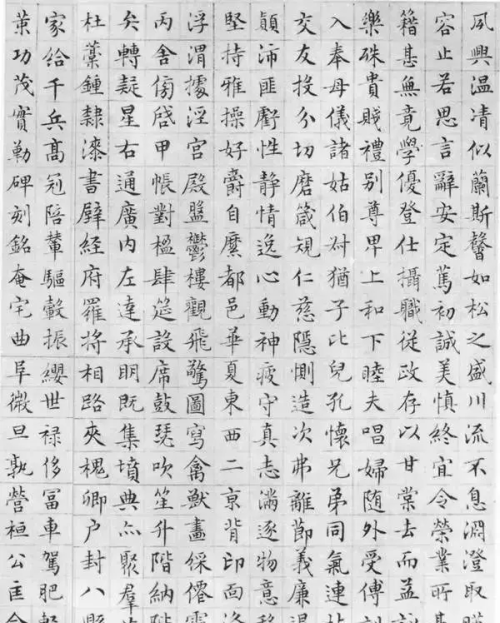 夙興温凊似蘭斯馨如松之盛川流不息淵澄取
容止若思言辭安定篤初誠美慎終宜令榮業所
籍甚無竟學優登仕攝職從政存以甘棠去而益
樂殊貴賤禮別尊卑上和下睦夫唱婦随外受傅
入奉母儀諸姑伯叔猶子比兒孔懷兄弟同氣連
交友投分切磨箴規仁慈隱惻造次弗離節義廉
顛沛匪虧性静情逸心動神疲守真志滿逐物意
堅持雅操好爵自縻都邑華夏東西二京背邙面
浮渭據涇宮殿盤鬱樓觀飛驚圖寫禽獸畫綵僊
丙舍傍啓甲帳對楹肆筵設席鼓瑟吹笙升階納
弁轉疑星右通廣内左達承明既集墳典亦聚羣
杜稾鍾隸漆書壁經府羅将相路夾槐卿户封八
家給千兵高冠陪輦驅轂振纓世禄侈冨車駕肥
策功茂實勒碑刻銘奄宅曲阜微旦孰營桓公匡